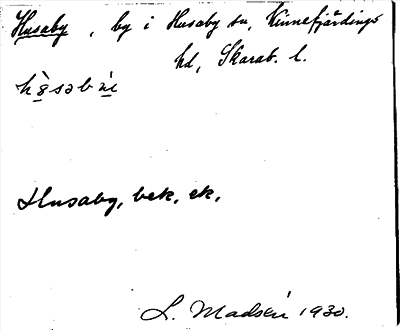 Husaby, by i Husaby sn, Kinnefjärdings
hd, Skarab. l.
Husaby, bek, ek,
L. Madsén 1930.